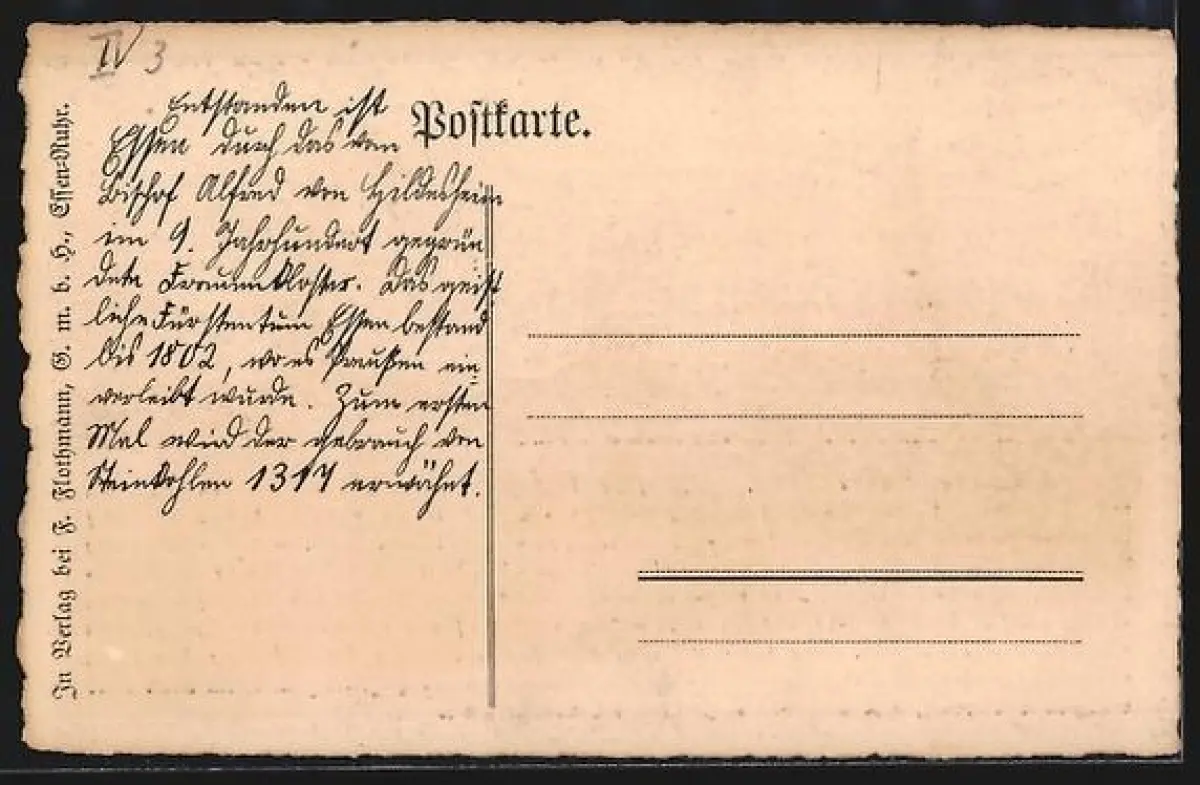 IV 3
Entstanden ist
Essen durch das vom
Bischof Alfred von Hildesheim
im 9. Jahrhundert gegrün
dete Frauenkloster. Das geist
liche Fürstentum Essen bestand
bis 1802, wo es Preußen ein
verleibt wurde. Zum ersten
Mal wird der Gebrauch von
Steinkohlen 1317 erwähnt.
Postkarte.
In Verlag bei F. Flothmann, G. m. b. H., Essen-Ruhr.